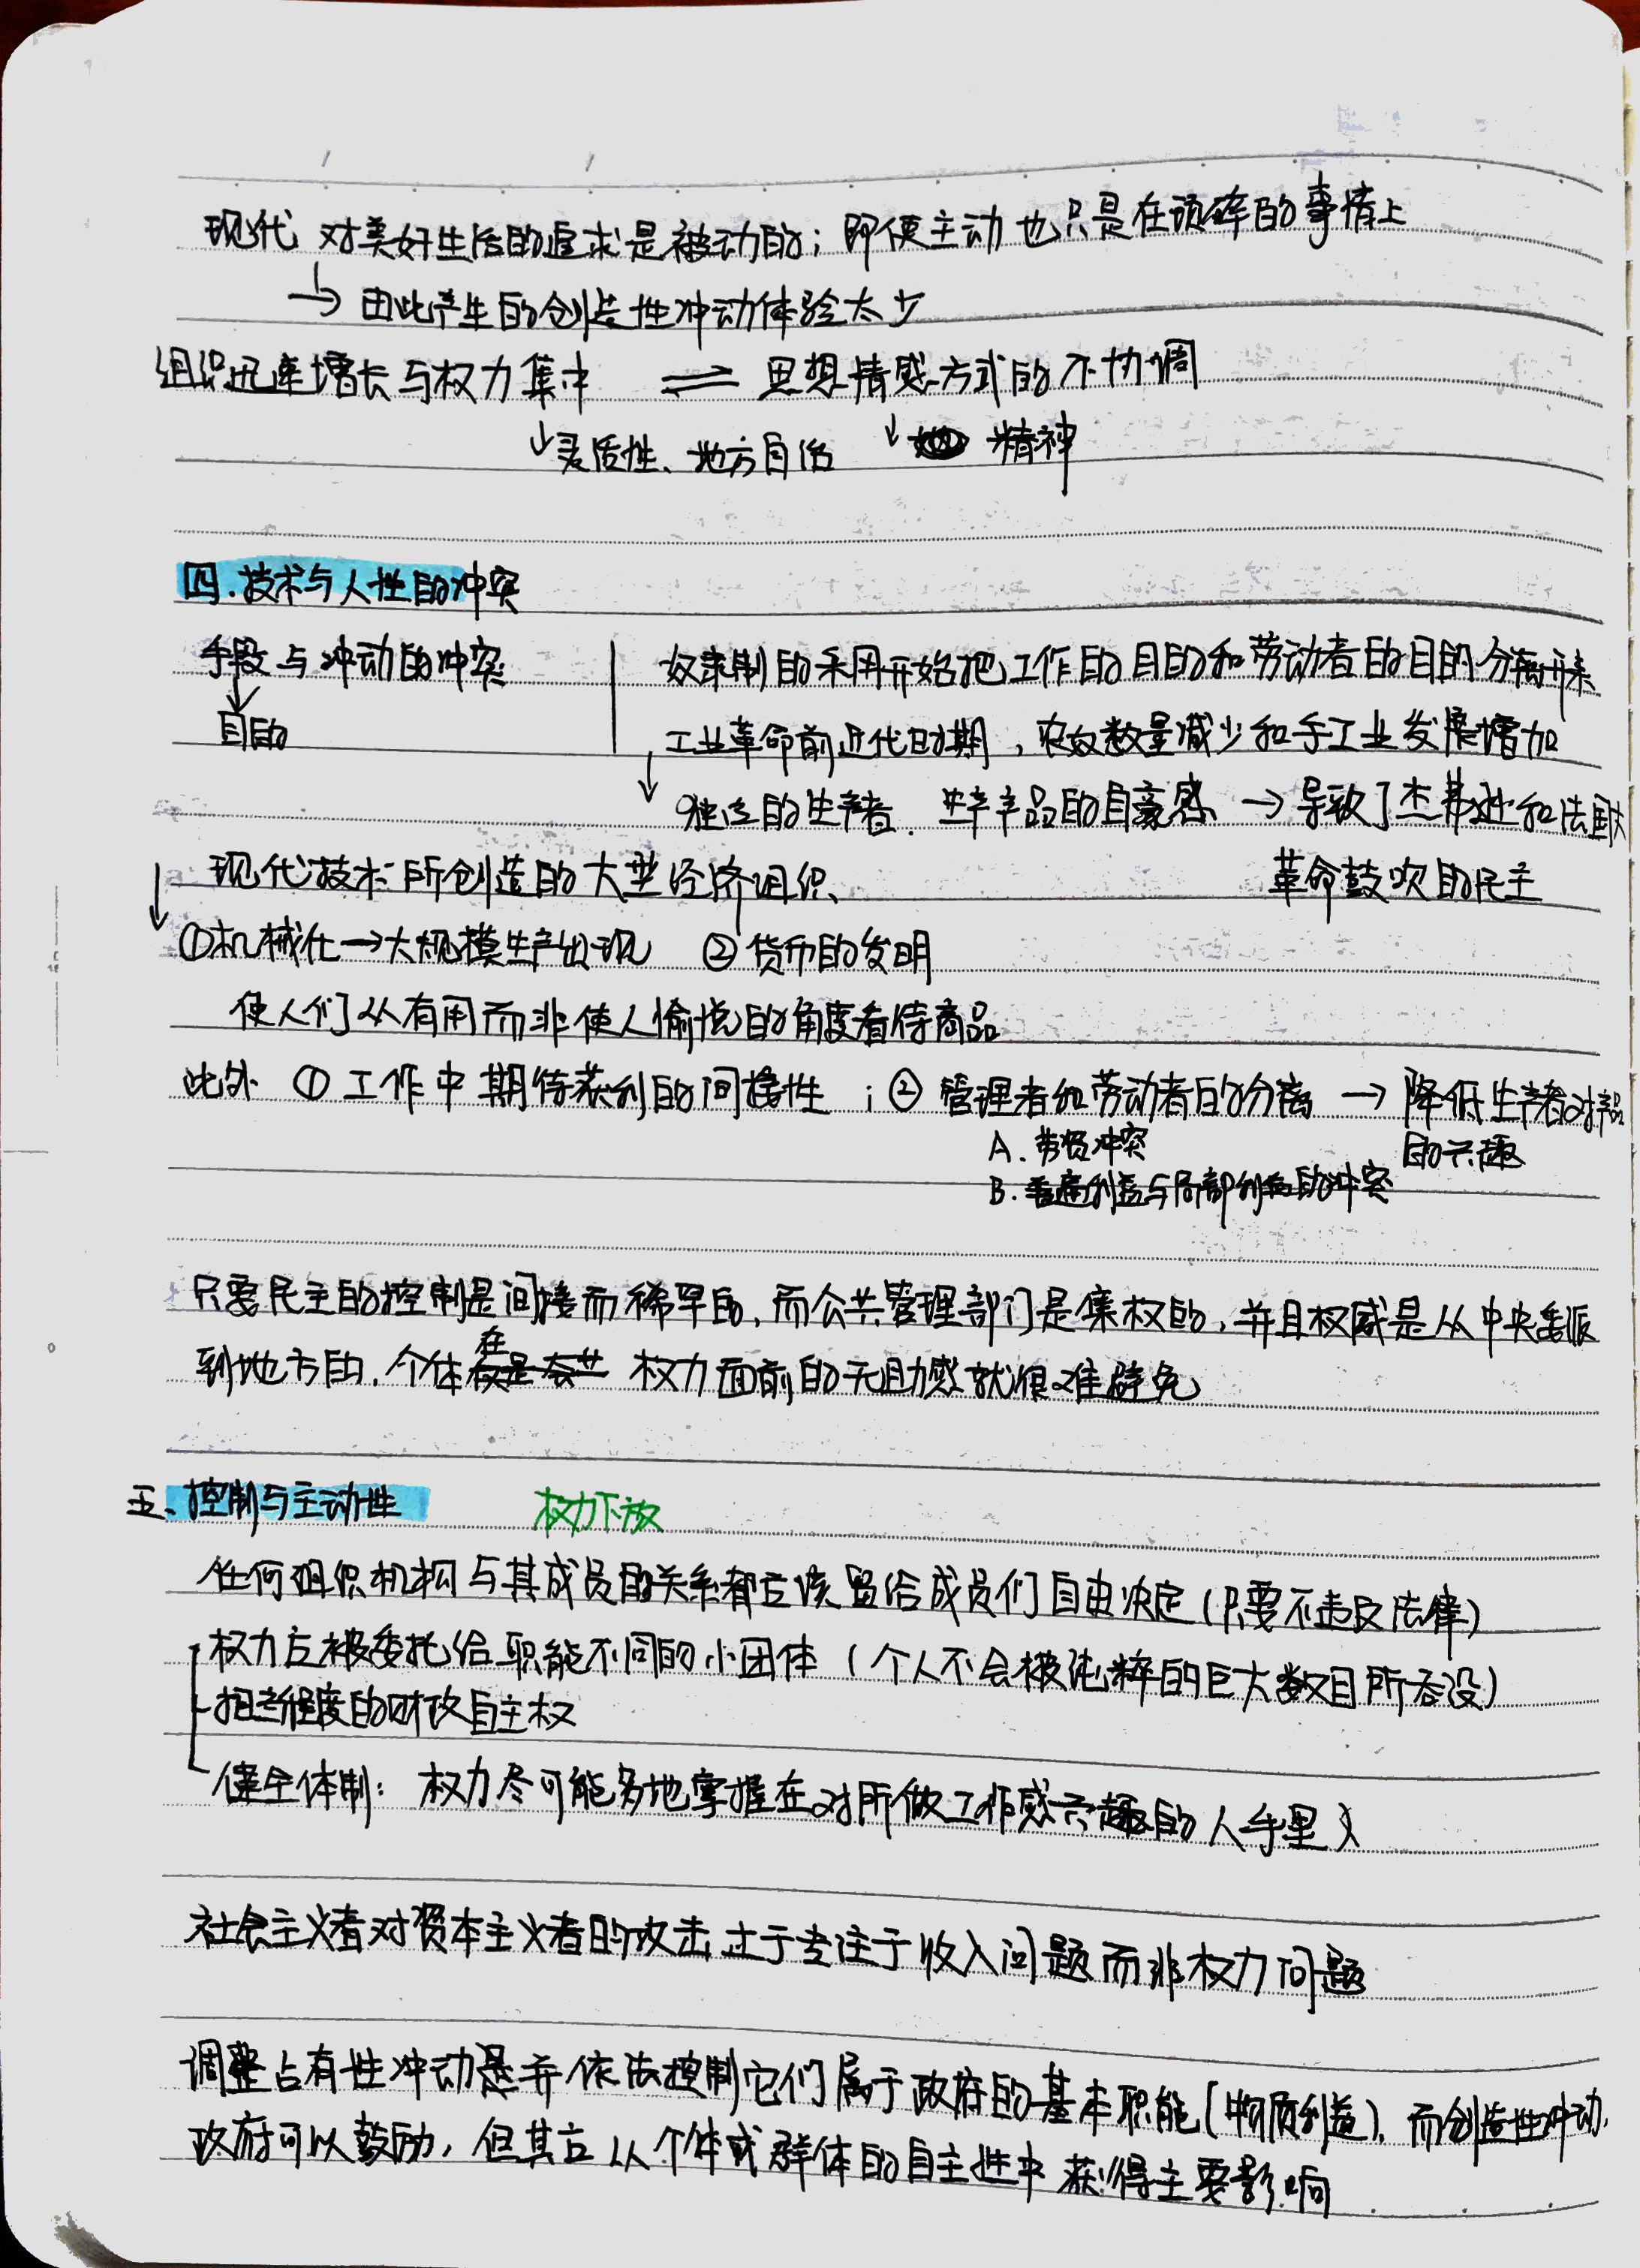 现代 对美好生活的追求是被动的；即便主动也只是在琐碎的事情上
→ 由此产生的创造性冲动体验太少
组织迅速增长与权力集中 ⇌ 思想情感方式的不协调
↓灵活性、地方自治 ↓ 精神
四.技术与人性的冲突
手段与冲动的冲突
↓
目的
奴隶制的采用开始把工作的目的和劳动者的目的分离开来
工业革命前近代时期，农奴数量减少和手工业发展增加
↓ 独立的生产者. 生产产品的自豪感 → 导致了杰弗逊和法国大
革命鼓吹的民主
↓ 现代技术所创造的大型经济组织、
①机械化→大规模生产出现 ②货币的发明
使人们从有用而非使人愉悦的角度看待商品
此外 ①工作中期待获利的间接性 ；② 管理者和劳动者的分离 → 降低生产者对产品
的兴趣
A.劳资冲突
B.普遍利益与局部利益的冲突
只要民主的控制是间接而稀罕的，而公共管理部门是集权的，并且权威是从中央委派
到地方的，个体在权力面前的无助感就很难避免
五、控制与主动性 权力下放
任何组织机构与其成员的关系都应该留给成员们自由决定（只要不违反法律）
权力应被委托给职能不同的小团体（个人不会被纯粹的巨大数目所吞没）
相当程度的财政自主权
健全体制：权力尽可能多地掌握在对所做工作感兴趣的人手里
社会主义者对资本主义者的攻击止于专注于收入问题而非权力问题
调整占有性冲动并依法控制它们属于政府的基本职能（物质利益），而创造性冲动，
政府可以鼓励，但其应从个体或群体的自主性中获得主要影响